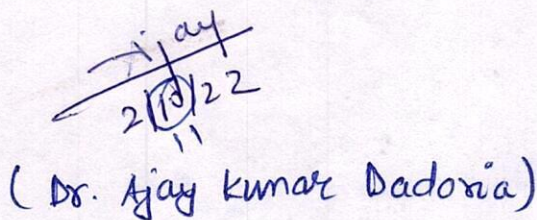 Ajay
2/11/22
(Dr. Ajay Kumar Dadoria)